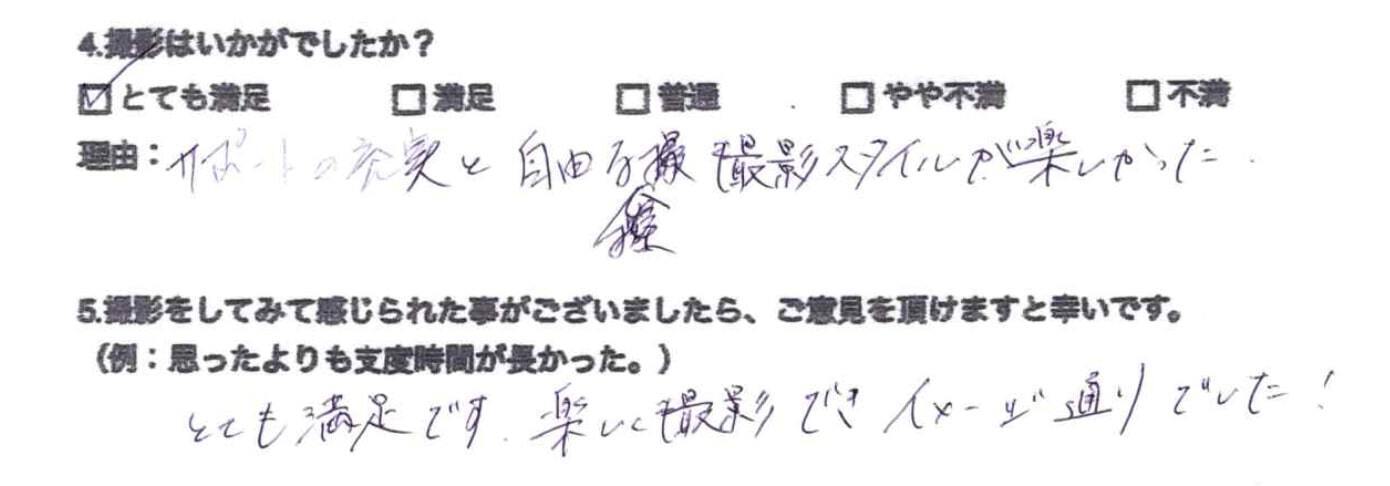 4.撮影はいかがでしたか？
☑とても満足 □満足 □普通 □やや不満 □不満
理由：サポートの充実と自由な撮影スタイルが楽しかった.
5.撮影をしてみて感じられた事がございましたら、ご意見を頂けますと幸いです。
（例：思ったよりも支度時間が長かった。）
とても満足です.楽しく撮影できイメージ通りでした！